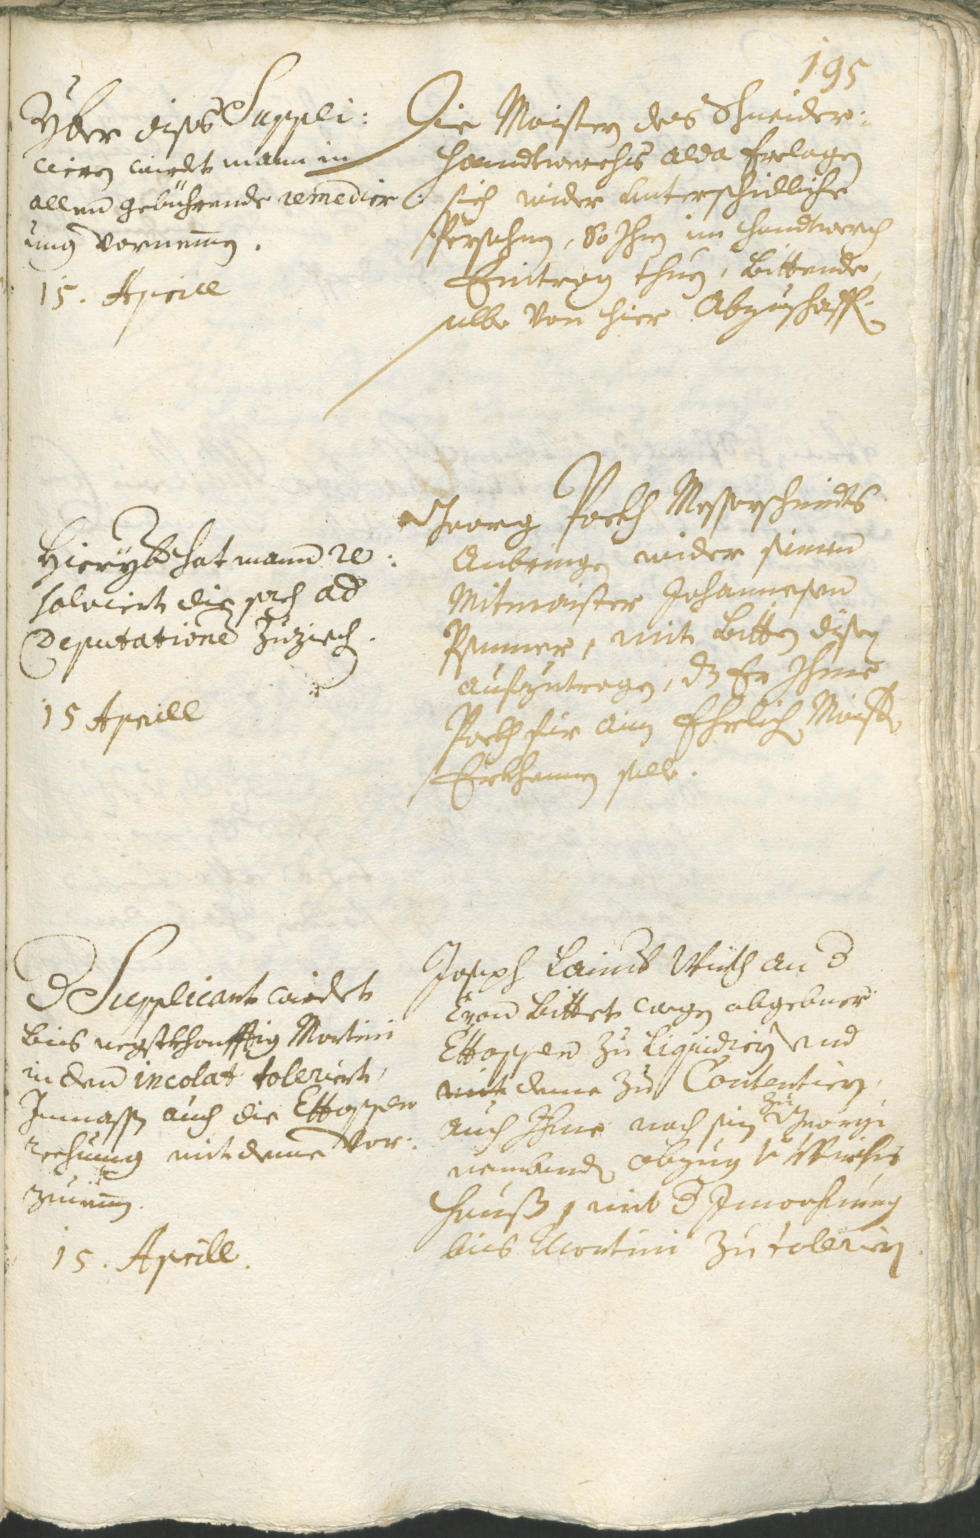 195
Yber dises Suppli:
cieren wirdt mann in
allem gebührende remedier
ung vornemen.
15. Aprill
Die Maister des Schneider:
handtwerchs alda beclagen
sich wider unterschidliche
Persohnen, So Ihnen im handtwerch
Eintrag thuen, Bittende,
selbe von hier Abzuschaffen
Hieryber hat mann re:
solviert die sach ad
Deputationem zuziech.
15 Aprill
Georg Poth Messerschmidts
Anbringen wider seinen
Mitmaister Johannesen
mit Bitten disen
aufzutragen, dz Er Ihme
Poth für ain Ehrlich Maister
Erkhennen solle.
D Supplicant wirdt
bis negstkhonfftig Martini
in dem incolat toleriert,
Inmassen auch die Ettappen
rechnung mit deme vor:
zunemen.
15. Aprill.
Joseph Würth an D
Bittet wegen abgebner
Ettappen zu Liquidieren und
mit deme zu Contentieren,
auch Ihme nach sein zu Georgi
nembenden abzug
hauß, mit D Inwohnung
bis Martini zu tolerieren.